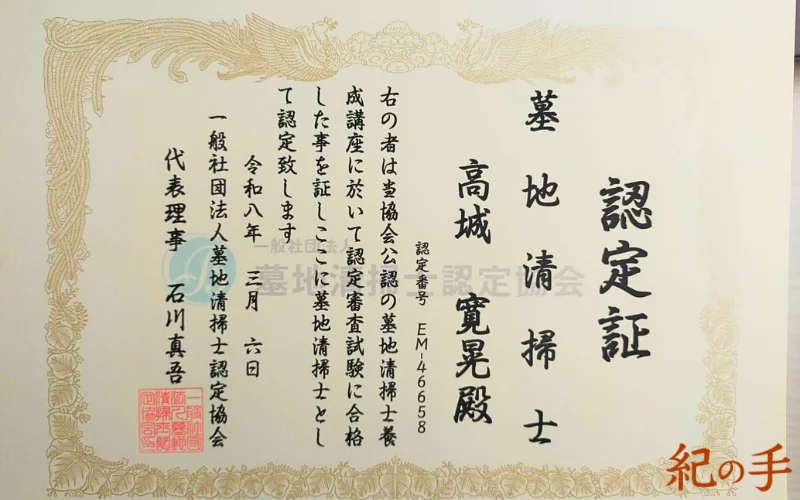 認定証
墓地清掃士
高城 寛晃殿
認定番号 EM-46658
右の者は当協会公認の墓地清掃士養
成講座に於いて認定審査試験に合格
した事を証しここに墓地清掃士とし
て認定致します
令和八年 三月 六日
一般社団法人墓地清掃士認定協会
代表理事 石川真吾
一般社団法人
墓地清掃士認定協会
紀の手